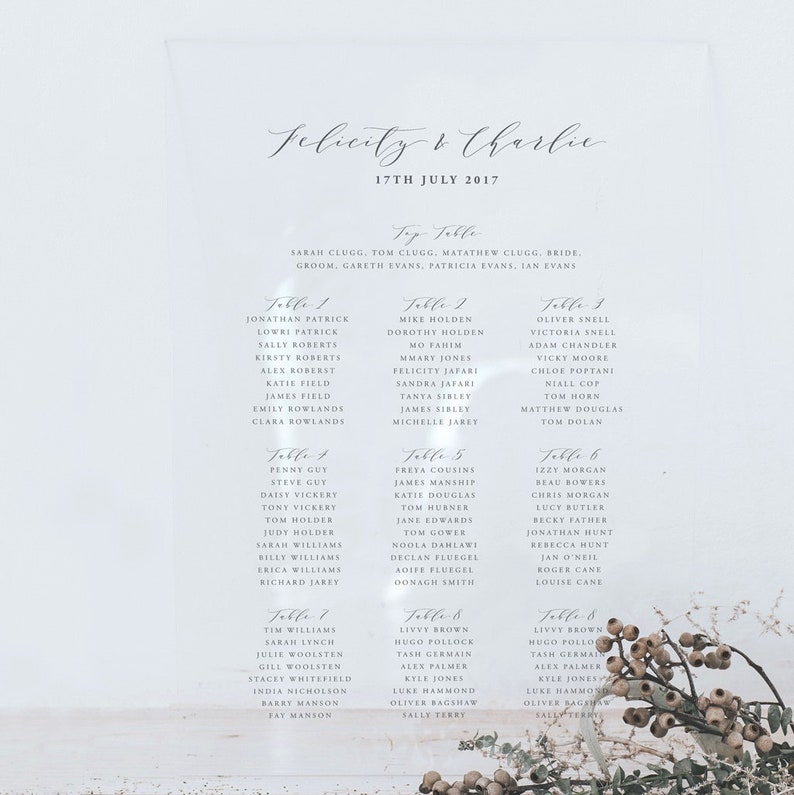 Felicity & Charlie
17TH JULY 2017
Top Table
SARAH CLUGG, TOM CLUGG, MATATHEW CLUGG, BRIDE,
GROOM, GARETH EVANS, PATRICIA EVANS, IAN EVANS
Table 1
JONATHAN PATRICK
LOWRI PATRICK
SALLY ROBERTS
KIRSTY ROBERTS
ALEX ROBERST
KATIE FIELD
JAMES FIELD
EMILY ROWLANDS
CLARA ROWLANDS
Table 2
MIKE HOLDEN
DOROTHY HOLDEN
MO FAHIM
MMARY JONES
FELICITY JAFARI
SANDRA JAFARI
TANYA SIBLEY
JAMES SIBLEY
MICHELLE JAREY
Table 3
OLIVER SNELL
VICTORIA SNELL
ADAM CHANDLER
VICKY MOORE
CHLOE POPTANI
NIALL COP
TOM HORN
MATTHEW DOUGLAS
TOM DOLAN
Table 4
PENNY GUY
STEVE GUY
DAISY VICKERY
TONY VICKERY
TOM HOLDER
JUDY HOLDER
SARAH WILLIAMS
BILLY WILLIAMS
ERICA WILLIAMS
RICHARD JAREY
Table 5
FREYA COUSINS
JAMES MANSHIP
KATIE DOUGLAS
TOM HUBNER
JANE EDWARDS
TOM GOWER
NOOLA DAHLAWI
DECLAN FLUEGEL
AOIFE FLUEGEL
OONAGH SMITH
Table 6
IZZY MORGAN
BEAU BOWERS
CHRIS MORGAN
LUCY BUTLER
BECKY FATHER
JONATHAN HUNT
REBECCA HUNT
JAN O'NEIL
ROGER CANE
LOUISE CANE
Table 7
TIM WILLIAMS
SARAH LYNCH
JULIE WOOLSTEN
GILL WOOLSTEN
STACEY WHITEFIELD
INDIA NICHOLSON
BARRY MANSON
FAY MANSON
Table 8
LIVVY BROWN
HUGO POLLOCK
TASH GERMAIN
ALEX PALMER
KYLE JONES
LUKE HAMMOND
OLIVER BAGSHAW
SALLY TERRY
Table 8
LIVVY BROWN
HUGO POLLOCK
TASH GERMAIN
ALEX PALMER
KYLE JONES
LUKE HAMMOND
OLIVER BAGSHAW
SALLY TERRY